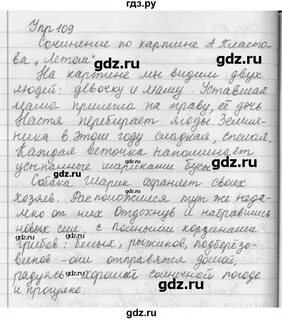 Упр 109
Сочинение по картине А. Пласто-
ва „Летом"
На картине мы видим двух
людей: девочку и маму. Уставшая
мама прилегла на траву, её дочь
Настя перебирает ягоды. Земля-
ника в этом году сладкая, спелая.
Каждая веточка напоминает
усыпанные шариками бусы.
Собака Шарик охраняет своих
хозяев. Расположился тут же неда-
леко от них. Отдохнув и набравшись
новых сил с полными корзинами
грибов: белых, рыжиков, подберёзо-
виков - они отправятся домой,
радуясь хорошей солнечной погоде
и прогулке.
gdz.ru
gdz.ru
gdz.ru
gdz.ru
gdz.ru
gdz.ru